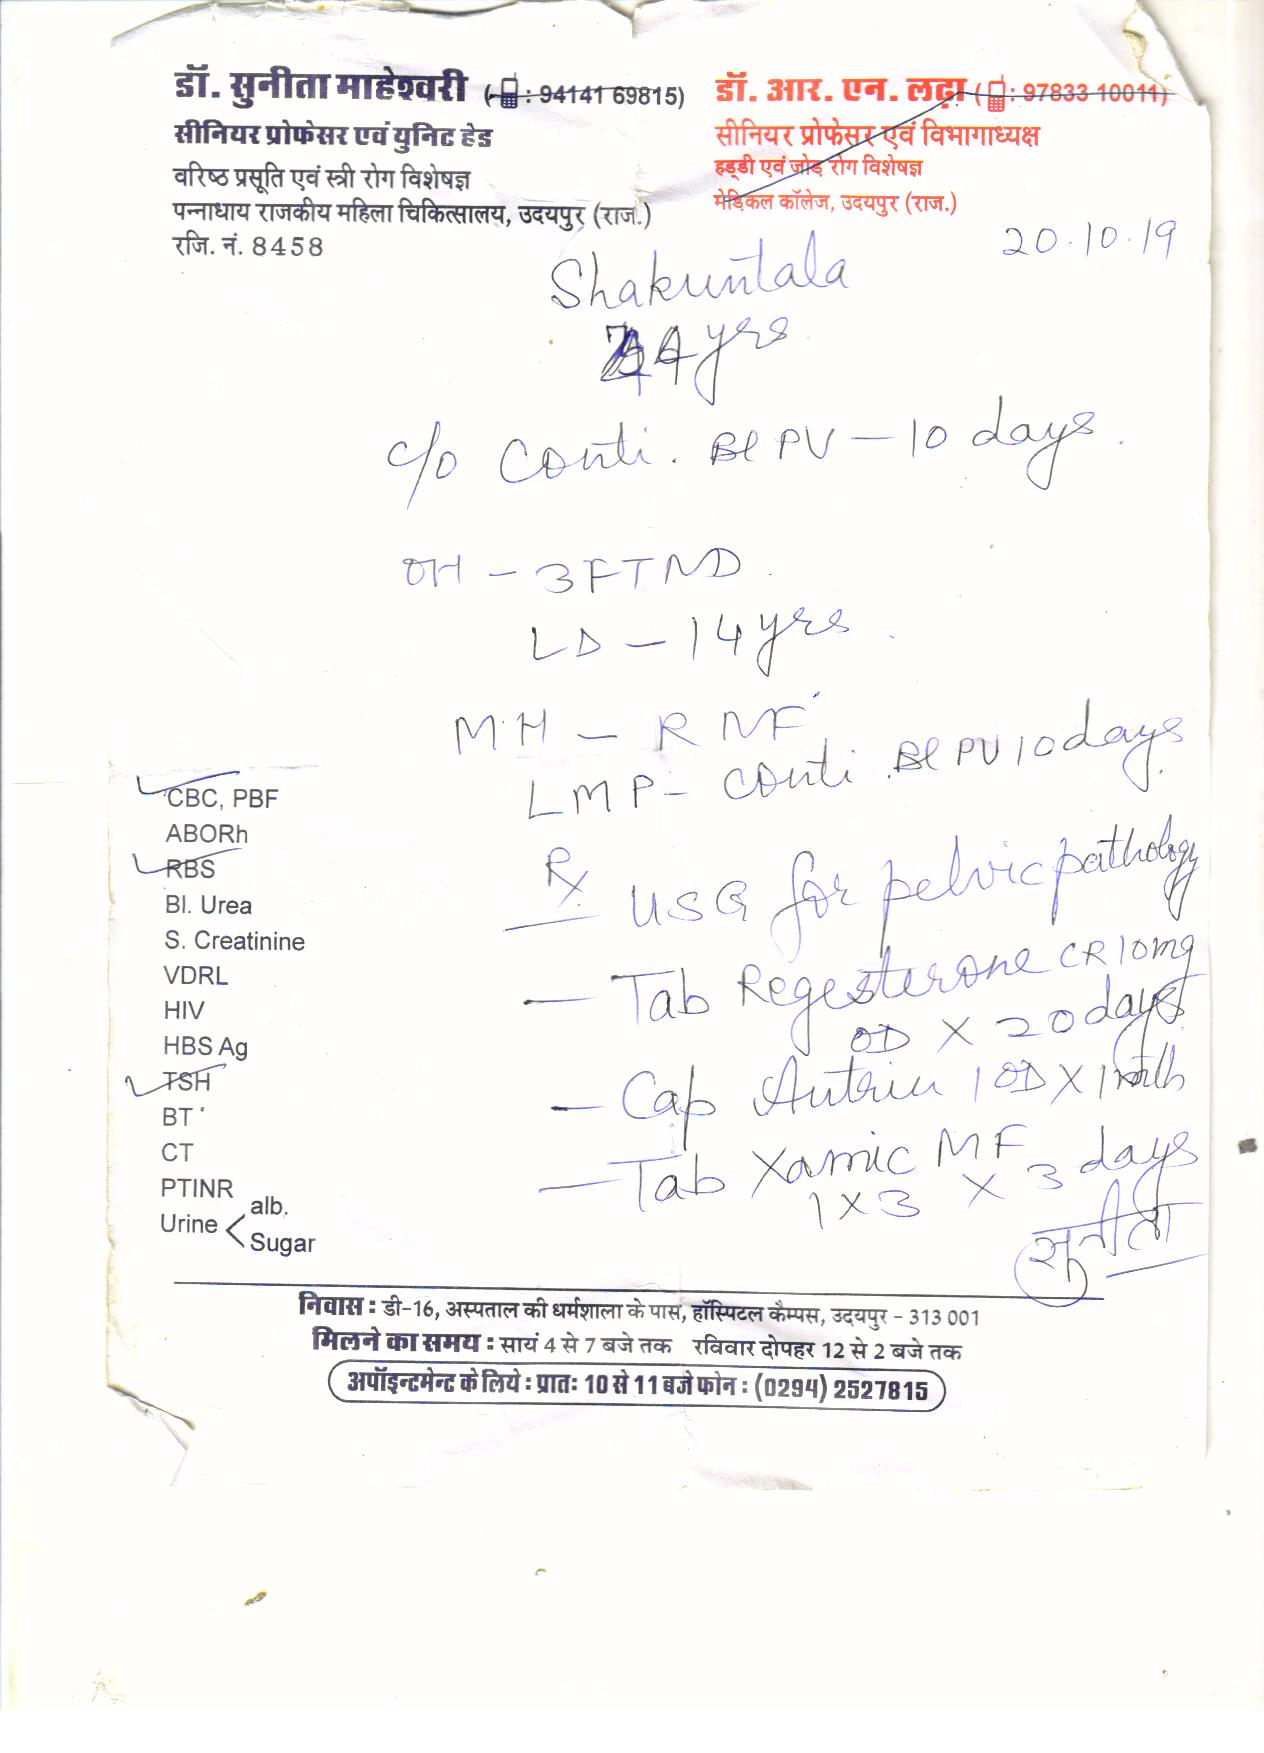 डॉ. सुनीता माहेश्वरी (: 94141 69815)
सीनियर प्रोफेसर एवं युनिट हेड
वरिष्ठ प्रसूति एवं स्त्री रोग विशेषज्ञ
पन्नाधाय राजकीय महिला चिकित्सालय, उदयपुर (राज.)
रजि. नं. 8458
डॉ. आर. एन. लढ़ा (: 97833 10011)
सीनियर प्रोफेसर एवं विभागाध्यक्ष
हड्डी एवं जोड़ रोग विशेषज्ञ
मेडिकल कॉलेज, उदयपुर (राज.)
20.10.19
Shakuntala
yrs
c/o Conti. Bl PV - 10 days.
OH - 3 FTND
LD - 14 yrs.
MH - RNF
LMP - Conti. Bl PV 10 days
CBC, PBF
ABORh
RBS
Bl. Urea
S. Creatinine
VDRL
HIV
HBS Ag
TSH
BT
CT
PTINR
Urine < alb.
Sugar
Rx
USG for pelvic pathology
- Tab Regesterone CR 10mg
OD X 20 days
- Cap Autrin 1 OD X 1 mth
- Tab Xamic MF
1 X 3 X 3 days
सुनीता
निवास : डी-16, अस्पताल की धर्मशाला के पास, हॉस्पिटल कैम्पस, उदयपुर - 313 001
मिलने का समय : सायं 4 से 7 बजे तक रविवार दोपहर 12 से 2 बजे तक
अपॉइन्टमेन्ट के लिये : प्रातः 10 से 11 बजे फोन : (0294) 2527815